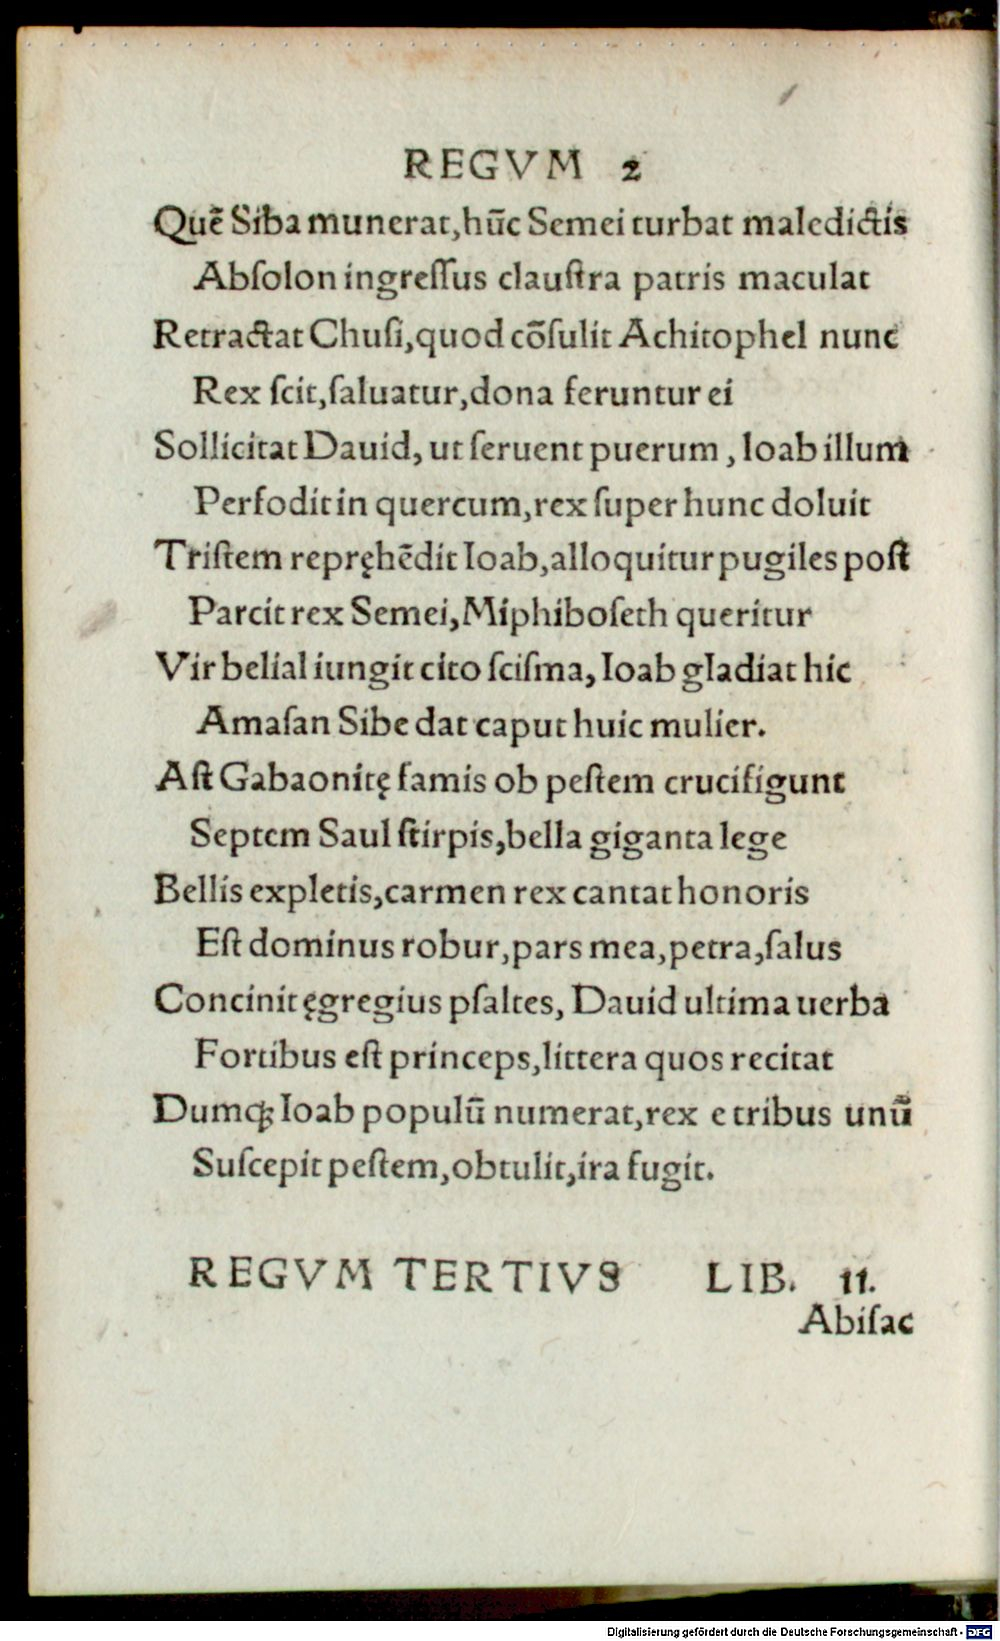 REGVM 2
Quē Siba munerat,hūc Semei turbat maledictis
Abſolon ingreſſus clauſtra patris maculat
Retractat Chuſi,quod cōſulit Achitophel nunc
Rex ſcit,ſaluatur,dona feruntur ei
Sollicitat Dauid, ut ſeruent puerum , Ioab illum
Perfodit in quercum,rex ſuper hunc doluit
Triſtem repręhēdit Ioab,alloquitur pugiles poſt
Parcit rex Semei,Miphiboſeth queritur
Vir belial iungit cito ſciſma, Ioab gladiat hic
Amaſan Sibe dat caput huic mulier.
Aſt Gabaonitę famis ob peſtem crucifigunt
Septem Saul ſtirpis,bella giganta lege
Bellis expletis,carmen rex cantat honoris
Eſt dominus robur,pars mea,petra,ſalus
Concinit ęgregius pſaltes, Dauid ultima uerba
Fortibus eſt princeps,littera quos recitat
Dumq; Ioab populū numerat,rex e tribus unū
Suſcepit peſtem,obtulit,ira fugit.
REGVM TERTIVS LIB. 11.
Abiſac
Digitalisierung gefördert durch die Deutsche Forschungsgemeinschaft - DFG